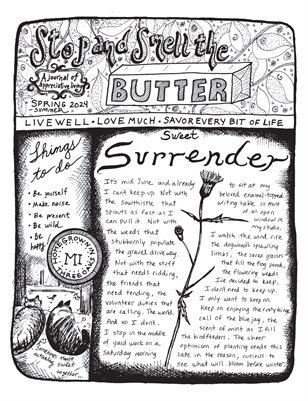 Stop and Smell the
BUTTER
A Journal of
Appreciative Living
SPRING 2024
SUMMER
LIVE WELL • LOVE MUCH • SAVOR EVERY BIT OF LIFE
Things
to do
• Be yourself
• Make noise
• Be present
• Be wild
• Be
happy
HOMEGROWN IN
MI
Sweet
Surrender
It's mid June and already
I can't keep up. Not with
the sowthistle that
sprouts as fast as I
can pull it. Not with
the weeds that
stubbornly populate
the gravel driveway.
Not with the stuff
that needs ridding,
the friends that
need tending, the
volunteer duties that
are calling. The word.
And so I don't.
I stop in the middle
of yard work on a
Saturday morning
to sit at my
beloved enamel-topped
writing table in front
of an open
window in
my studio.
I watch the wind riff
the dogwood's sprawling
limbs, the cocoa grasses
that fill the frog pond,
the flowering weeds
I've decided to keep.
I don't need to keep up.
I only want to keep on.
Keep on enjoying the rusty-hinge
call of the blue jay, the
scent of mint as I fill
the birdfeeders. The sheer
optimism of planting seeds this
late in the season, curious to
see what will bloom before winter.